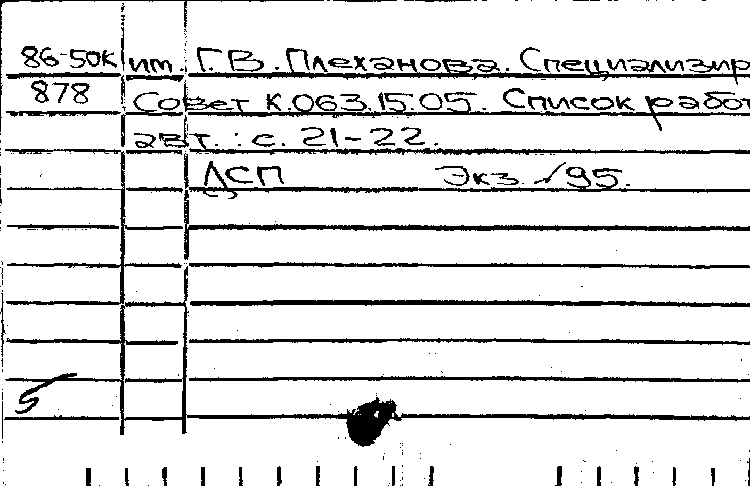 86-50К им. Г.В. Плеханова. Специализир
878 Совет К.063.15.05. Список работ
авт.: с. 21-22.
ДСП Экз. √95.
5